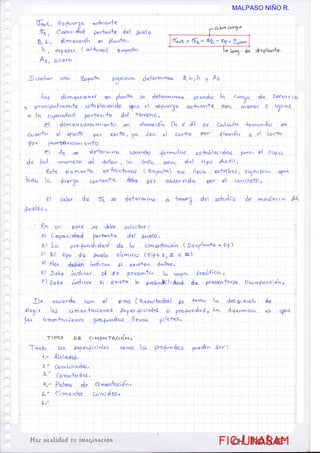 MALPASO NIÑO R.
σact. Esfuerzo actuante
σt. Capacidad portante del suelo
B, L, dimensión en planta.
h, espesor (altura) zapata
As, acero
Diseñar una zapata significa determinar B, L, h y As
Las dimensiones en planta se determinan usando la carga de servicio
y principalmente estableciendo que el esfuerzo actuante sea menor o igual
a la capacidad portante del terreno.
El dimensionamiento en elevación (h ó d) se calcula tomando en
cuenta el aporte por corte, ya sea el corte por flexión o el corte
por punzonamiento
El As se determina usando fórmulas establecidas para el caso
de tal manera al fallar, la falla sea del tipo dúctil,
Este elemento estructural (zapata) no lleva estribos, significa que
toda la fuerza cortante debe ser absorvida por el concreto.
El valor de σt se determina a través del estudio de mecánica de
suelos.
En un EMS se debe solicitar:
a) Capacidad portante del suelo.
b) La profundidad de la cimentación (Desplante = Df)
c) El tipo de suelo sísmico (Tipo 1, 2 o 3)
d) Nos deben indicar si existen fallas.
e) Debe indicar si se presenta la napa freática,
f) Debe indicar si existe la probabilidad de presentarse licuefacción.
De acuerdo con el EMS (Resultados) se toma la decisión de
elegir las cimentaciones superficiales o profundas, la diferencia es que
las cimentaciones profundas llevan pilotes.
TIPOS DE CIMENTACIÓN.
Tanto las superficiales como las profundas pueden ser:
1.- Aisladas.
2.- Combinadas.
3.- Conectadas.
4.- Platea de cimentación.
5.- Cimientos corridos.
6.-
Haz realidad tu imaginación
FIC-UNASAM